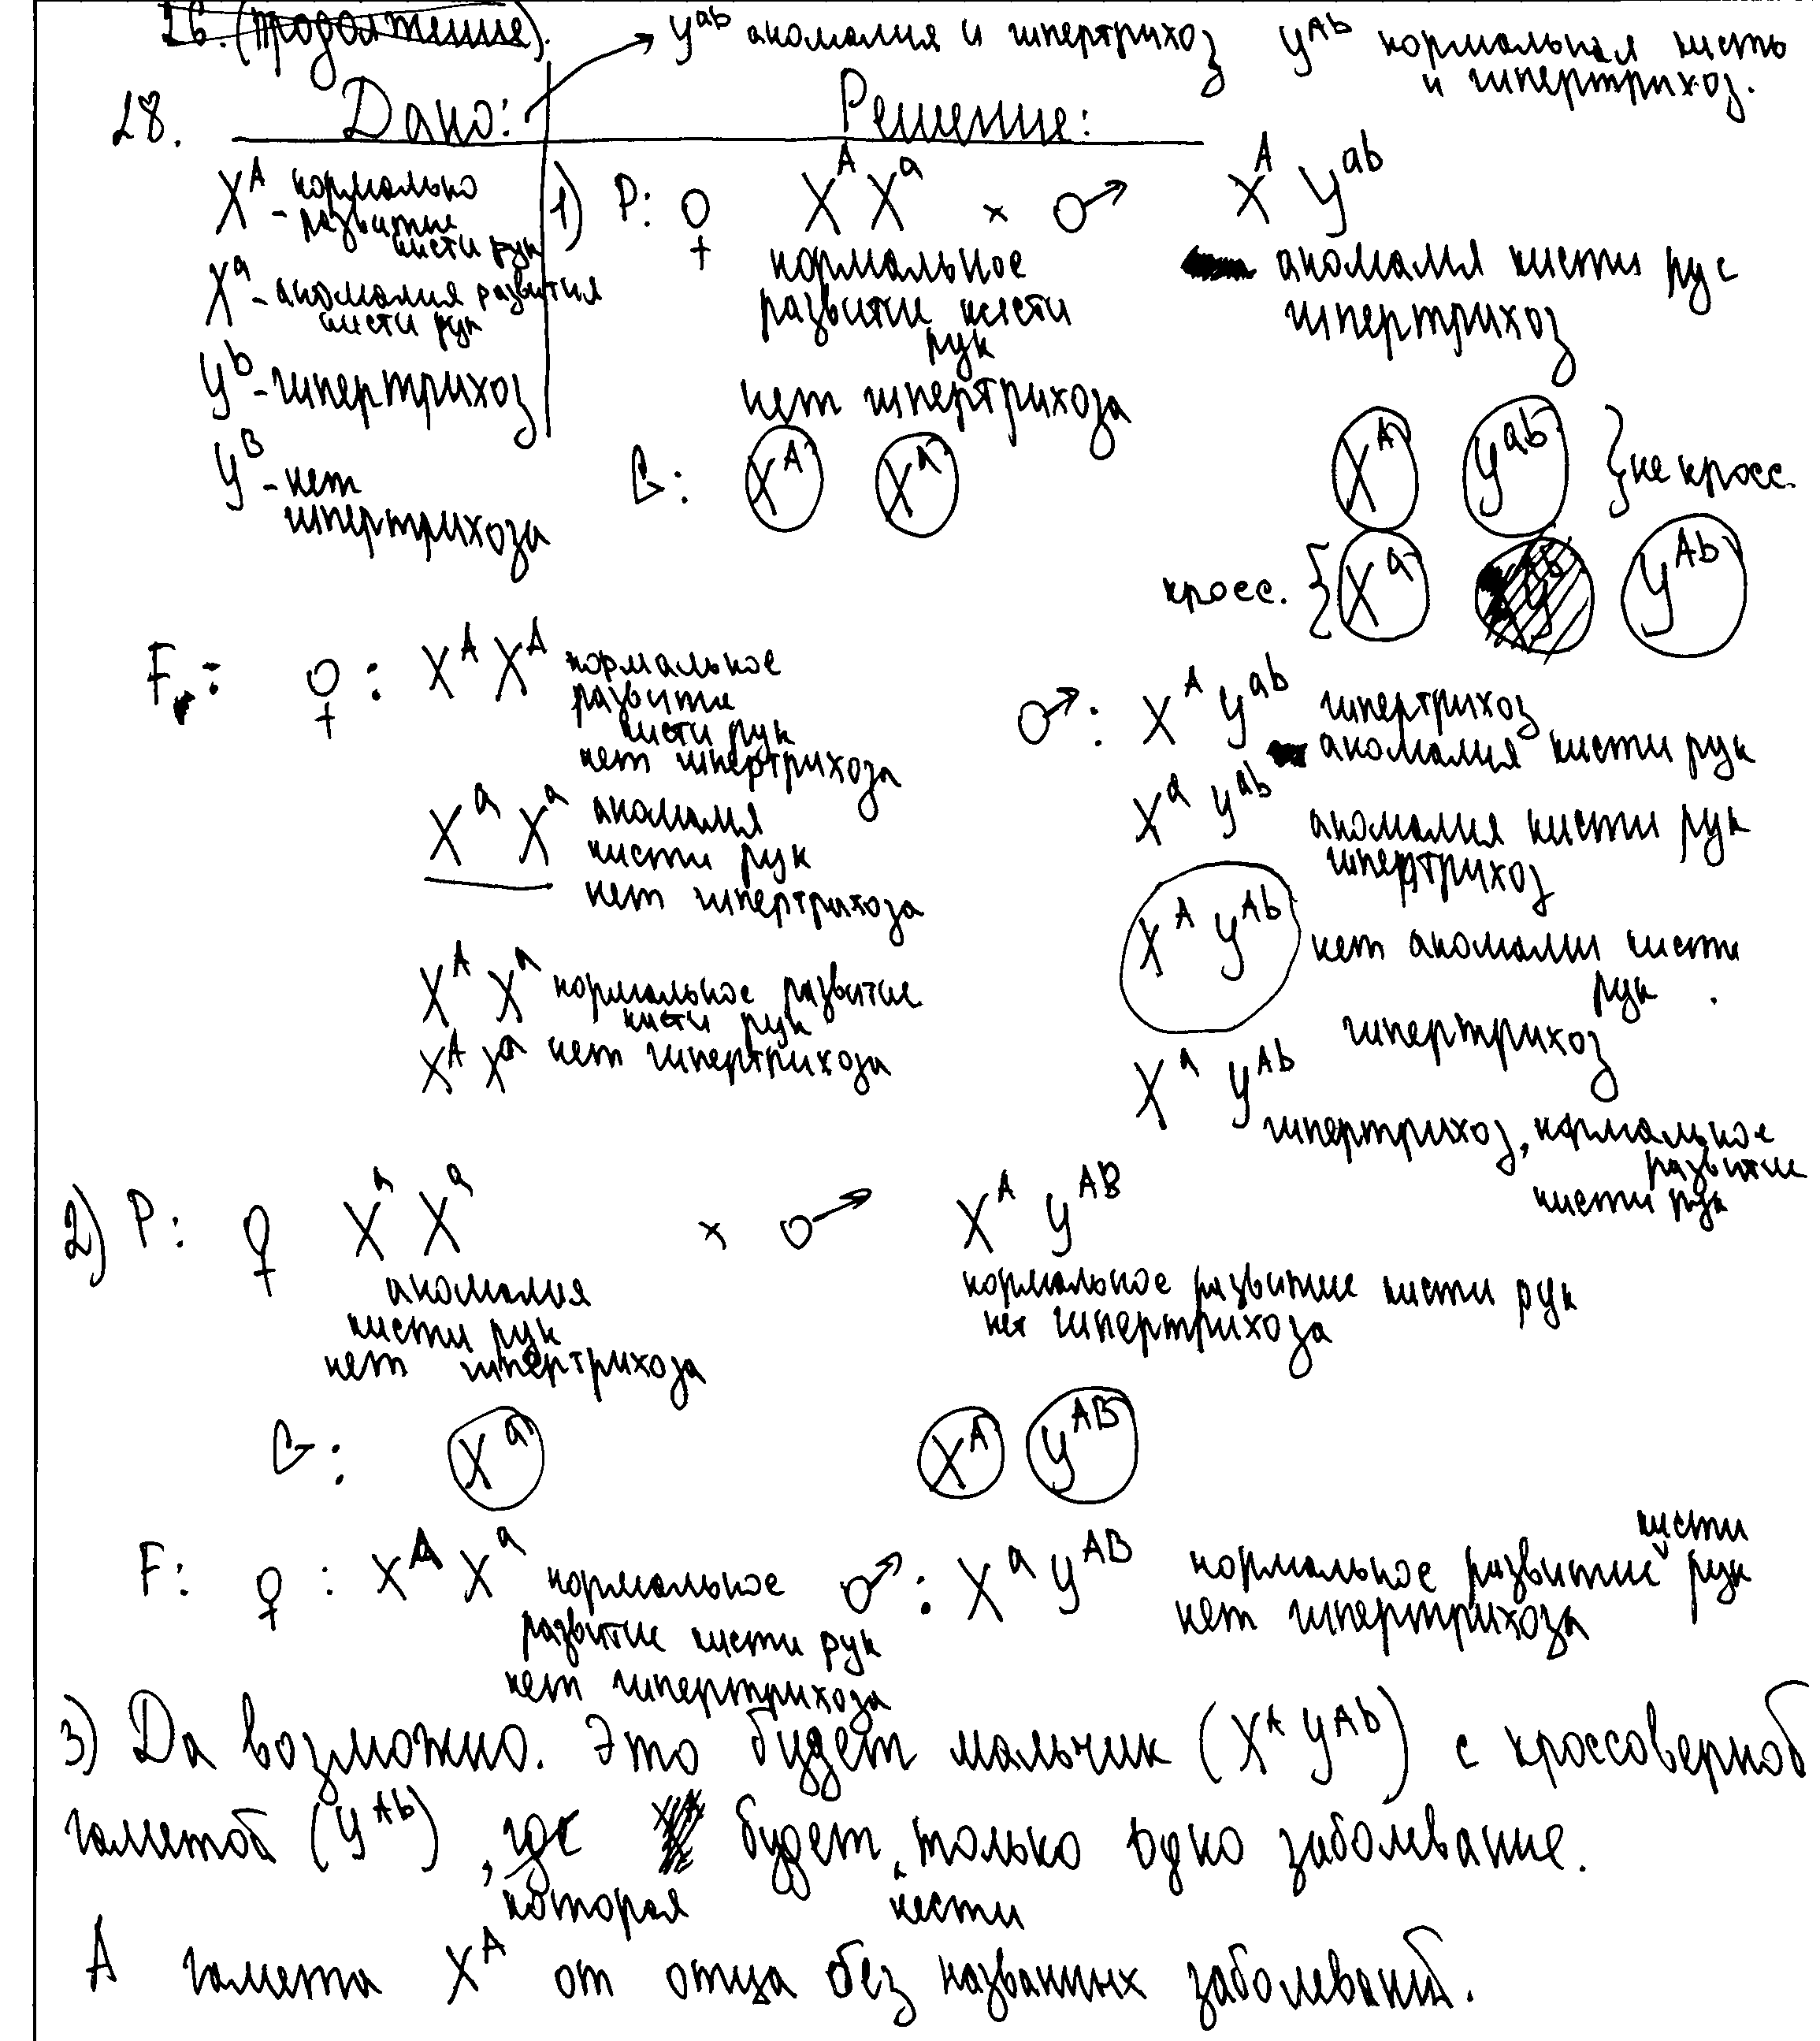 26. (продолжение).
Y^ab аномалия и гипертрихоз Y^Ab нормальная кисть
и гипертрихоз.
28. Дано: Решение:
X^A - нормально
развитие
кисти рук
X^a - аномалия развития
кисти рук
Y^b - гипертрихоз
Y^B - нет
гипертрихоза
1) P: ♀ X^A X^a × ♂ X^A Y^ab
нормальное
развитие кисти
рук
нет гипертрихоза
аномалия кисти рус
гипертрихоз
G: X^A X^a X^A Y^ab } не кросс.
кросс. { X^a Y^Ab
F: ♀: X^A X^A нормальное
развитие
кисти рук
нет гипертрихоза
X^a X^a аномалия
кисти рук
нет гипертрихоза
X^A X^a нормальное развитие
кисти рук
X^A X^a нет гипертрихоза
♂: X^A Y^ab гипертрихоз
аномалия кисти рук
X^a Y^ab аномалия кисти рук
гипертрихоз
X^A Y^Ab нет аномалии кисти
рук .
гипертрихоз
X^a Y^Ab
гипертрихоз, нормальное
развитие
кисти рук
2) P: ♀ X^a X^a × ♂ X^A Y^AB
аномалия
кисти рук
нет гипертрихоза
нормальное развитие кисти рук
нет гипертрихоза
G: X^a X^A Y^AB
F: ♀: X^A X^a нормальное
развитие кисти рук
нет гипертрихоза
♂: X^a Y^AB нормальное развитие кисти рук
нет гипертрихоза
3) Да возможно. Это будет мальчик (X^A Y^Ab) с кроссоверной
гаметой (Y^Ab), где которая будет нести только одно заболевание.
А гамета X^A от отца без названных заболеваний.